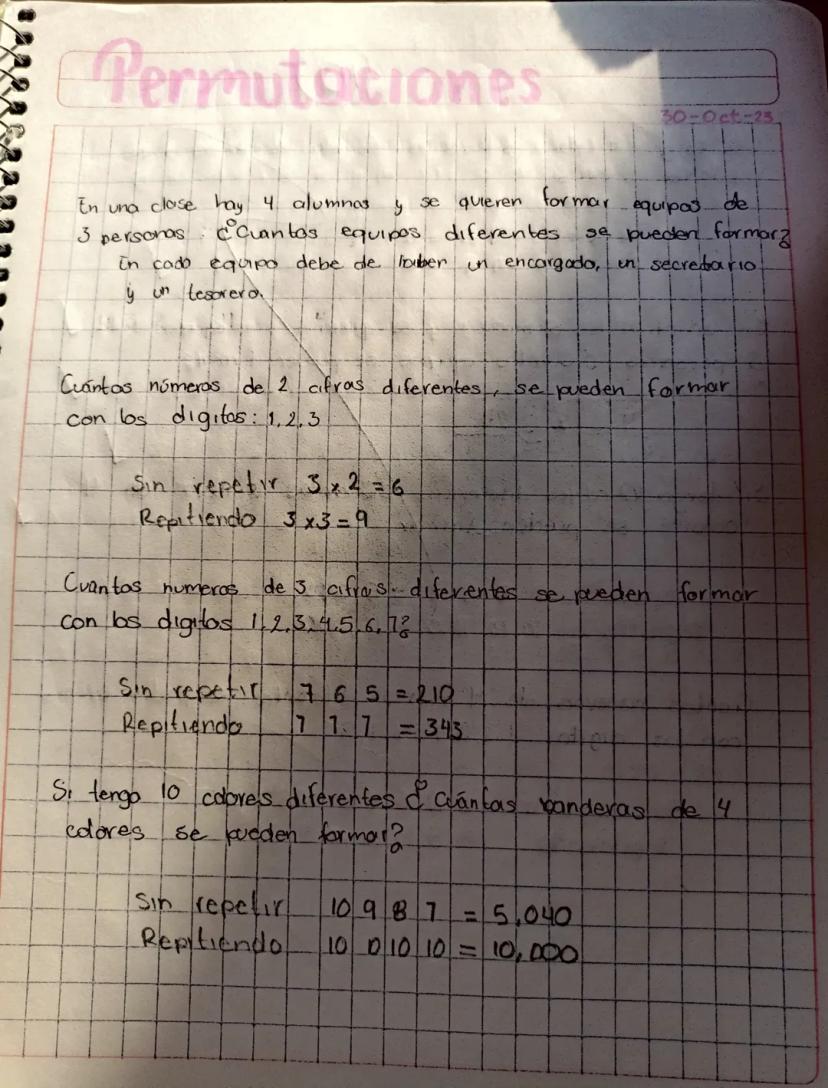 Permutaciones
30-Oct-23
En una clase hay 4 alumnos y se quieren formar equipos de
3 personas. ¿Cuantos equipos diferentes se pueden formar?
En cada equipo debe de haber un encargado, un secretario
y un tesorero.
Cuántos números de 2 cifras diferentes, se pueden formar
con los digitos: 1, 2, 3
Sin repetir 3 x 2 = 6
Repitiendo 3 x 3 = 9
Cuantos numeros de 3 cifras diferentes se pueden formar
con los digitos 1, 2, 3, 4, 5, 6, 7?
Sin repetir 7 6 5 = 210
Repitiendo 7 7 7 = 343
Si tengo 10 colores diferentes ¿Cuántas banderas de 4
colores se pueden formar?
Sin repetir 10 9 8 7 = 5,040
Repitiendo 10 10 10 10 = 10,000